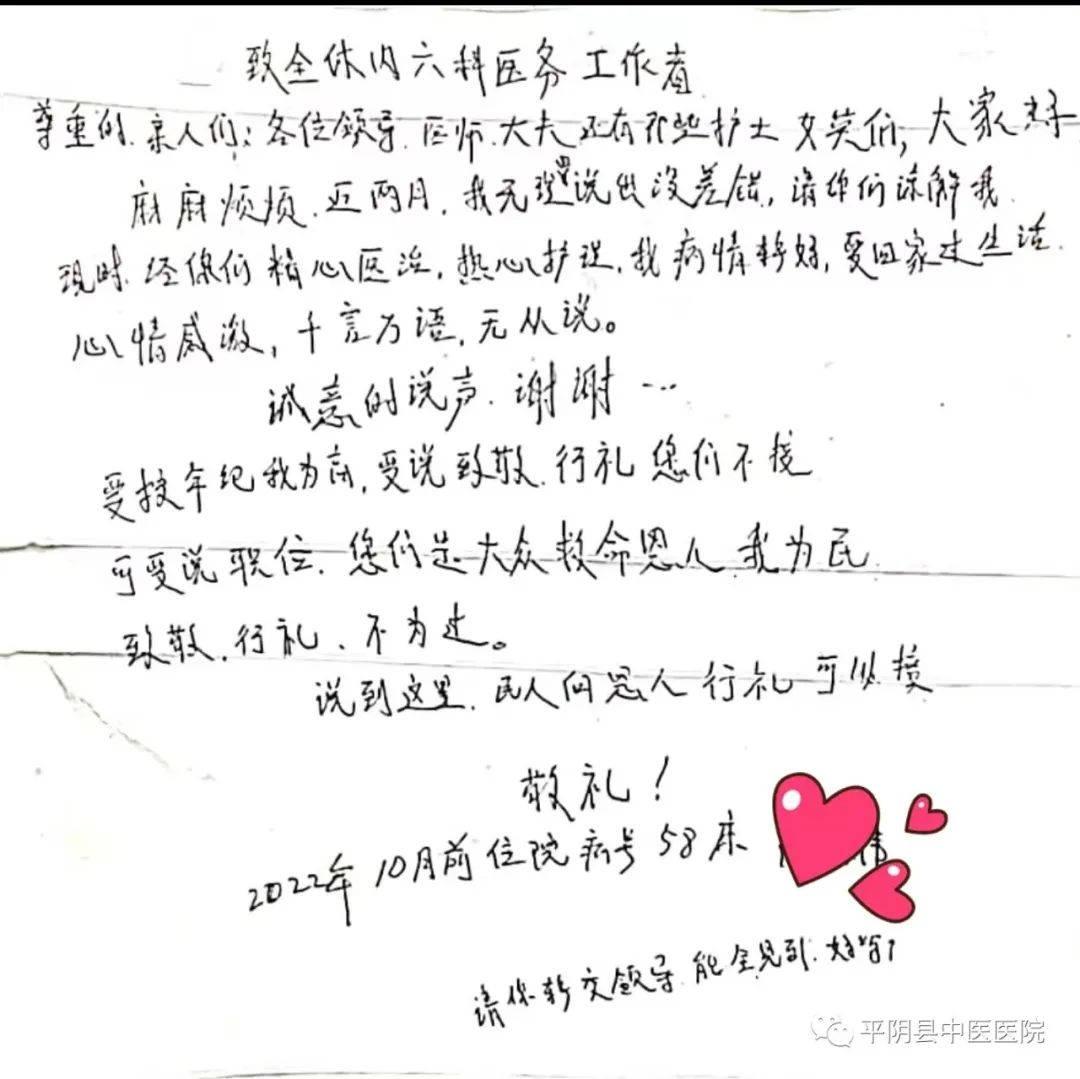 致全体内六科医务工作者
尊重的.亲人们:各位领导.医师.大夫还有那些护士女英们,大家好
麻麻烦烦.近两月,我无理说出没差错,请你们谅解我.
现时.经你们精心医治,热心护理,我病情转好,要回家过生活.
心情感激,千言万语,无从说。
诚意的说声.谢谢…
要按年纪我为高,要说致敬.行礼您们不接
可要说职位.您们是大众救命恩人.我为民.
致敬.行礼、不为过。
说到这里.民人向恩人行礼可以接
敬礼!
2022年10月前住院病号58床
请你转交领导.能全见到.好吗?
平阴县中医医院